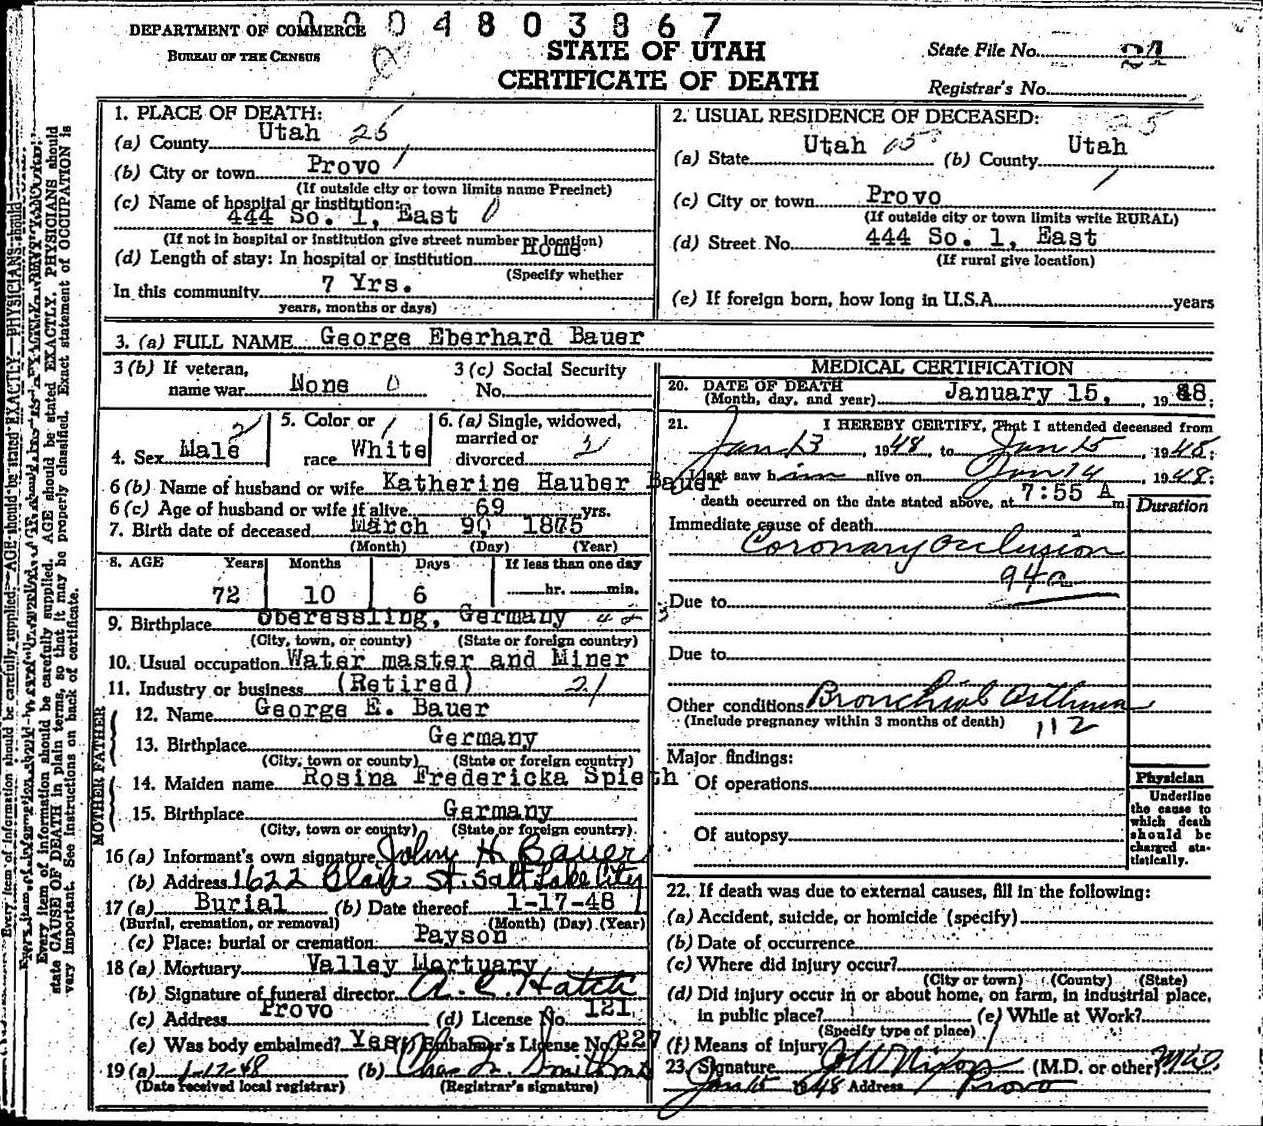 0004803867
DEPARTMENT OF COMMERCE
BUREAU OF THE CENSUS
STATE OF UTAH
CERTIFICATE OF DEATH
State File No. 24
Registrar's No.
1. PLACE OF DEATH:
(a) County Utah 25
(b) City or town Provo 1
(If outside city or town limits name Precinct)
(c) Name of hospital or institution:
444 So. 1, East 0
(If not in hospital or institution give street number or location)
(d) Length of stay: In hospital or institution Home
(Specify whether
In this community 7 Yrs.
years, months or days)
2. USUAL RESIDENCE OF DECEASED: 25
(a) State Utah (b) County Utah
(c) City or town Provo 1
(If outside city or town limits write RURAL)
(d) Street No. 444 So. 1, East
(If rural give location)
(e) If foreign born, how long in U.S.A. years
3. (a) FULL NAME George Eberhard Bauer
3 (b) If veteran,
name war None 0
3 (c) Social Security
No.
4. Sex Male 2
5. Color or 1
race White
6. (a) Single, widowed,
married or
divorced 2
6 (b) Name of husband or wife Katherine Hauber Bauer
6 (c) Age of husband or wife if alive 69 yrs.
7. Birth date of deceased March 9, 1875
(Month) (Day) (Year)
8. AGE Years Months Days If less than one day
72 10 6 hr. min.
9. Birthplace Oberessling, Germany 42
(City, town, or county) (State or foreign country)
10. Usual occupation Water master and Miner
11. Industry or business (Retired) 21
FATHER
12. Name George E. Bauer
13. Birthplace Germany
(City, town or county) (State or foreign country)
MOTHER
14. Maiden name Rosina Fredericka Spieth
15. Birthplace Germany
(City, town or county) (State or foreign country)
16 (a) Informant's own signature John H. Bauer
(b) Address 1622 Blair St. Salt Lake City
17 (a) Burial (b) Date thereof 1-17-48
(Burial, cremation, or removal) (Month) (Day) (Year)
(c) Place: burial or cremation Payson
18 (a) Mortuary Valley Mortuary
(b) Signature of funeral director A. E. Hatch
(c) Address Provo (d) License No. 121
(e) Was body embalmed? Yes Embalmer's License No. 227
19 (a) 1-17-48 (b) Chas. Smith
(Date received local registrar) (Registrar's signature)
MEDICAL CERTIFICATION
20. DATE OF DEATH
(Month, day, and year) January 15, , 1948;
21. I HEREBY CERTIFY, That I attended deceased from
Jan 13, 1948, to Jan 15, 1948;
I last saw him alive on Jan 14, 1948;
death occurred on the date stated above, at 7:55 A m.
Duration
Immediate cause of death
Coronary Occlusion
94a
Due to
Due to
Other conditions Bronchial Asthma
(Include pregnancy within 3 months of death) 112
Major findings:
Of operations
Of autopsy
Physician
Underline
the cause to
which death
should be
charged sta-
tistically.
22. If death was due to external causes, fill in the following:
(a) Accident, suicide, or homicide (specify)
(b) Date of occurrence
(c) Where did injury occur?
(City or town) (County) (State)
(d) Did injury occur in or about home, on farm, in industrial place,
in public place? (e) While at Work?
(Specify type of place)
(f) Means of injury
23. Signature J W Nixon (M.D. or other) M.D.
Jan 15 1948 Address Provo
Every item of information should be carefully supplied. AGE should be stated EXACTLY. PHYSICIANS should
state CAUSE OF DEATH in plain terms, so that it may be properly classified. Exact statement of OCCUPATION is
very important. See instructions on back of certificate.